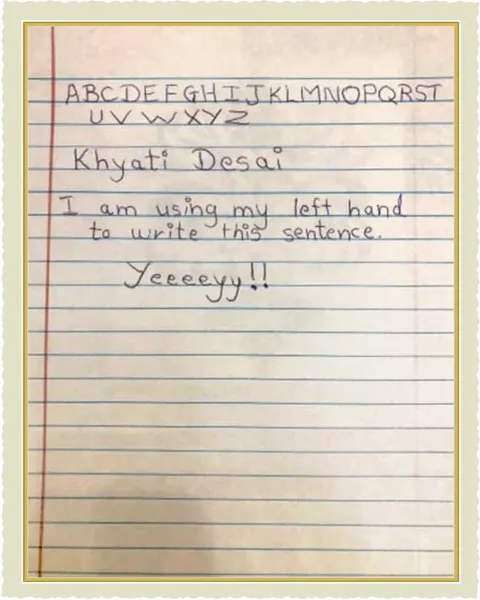 ABCDEFGHIJKLMNOPQRST
UVWXYZ
Khyati Desai
I am using my left hand
to write this sentence.
Yeeeeyy!!